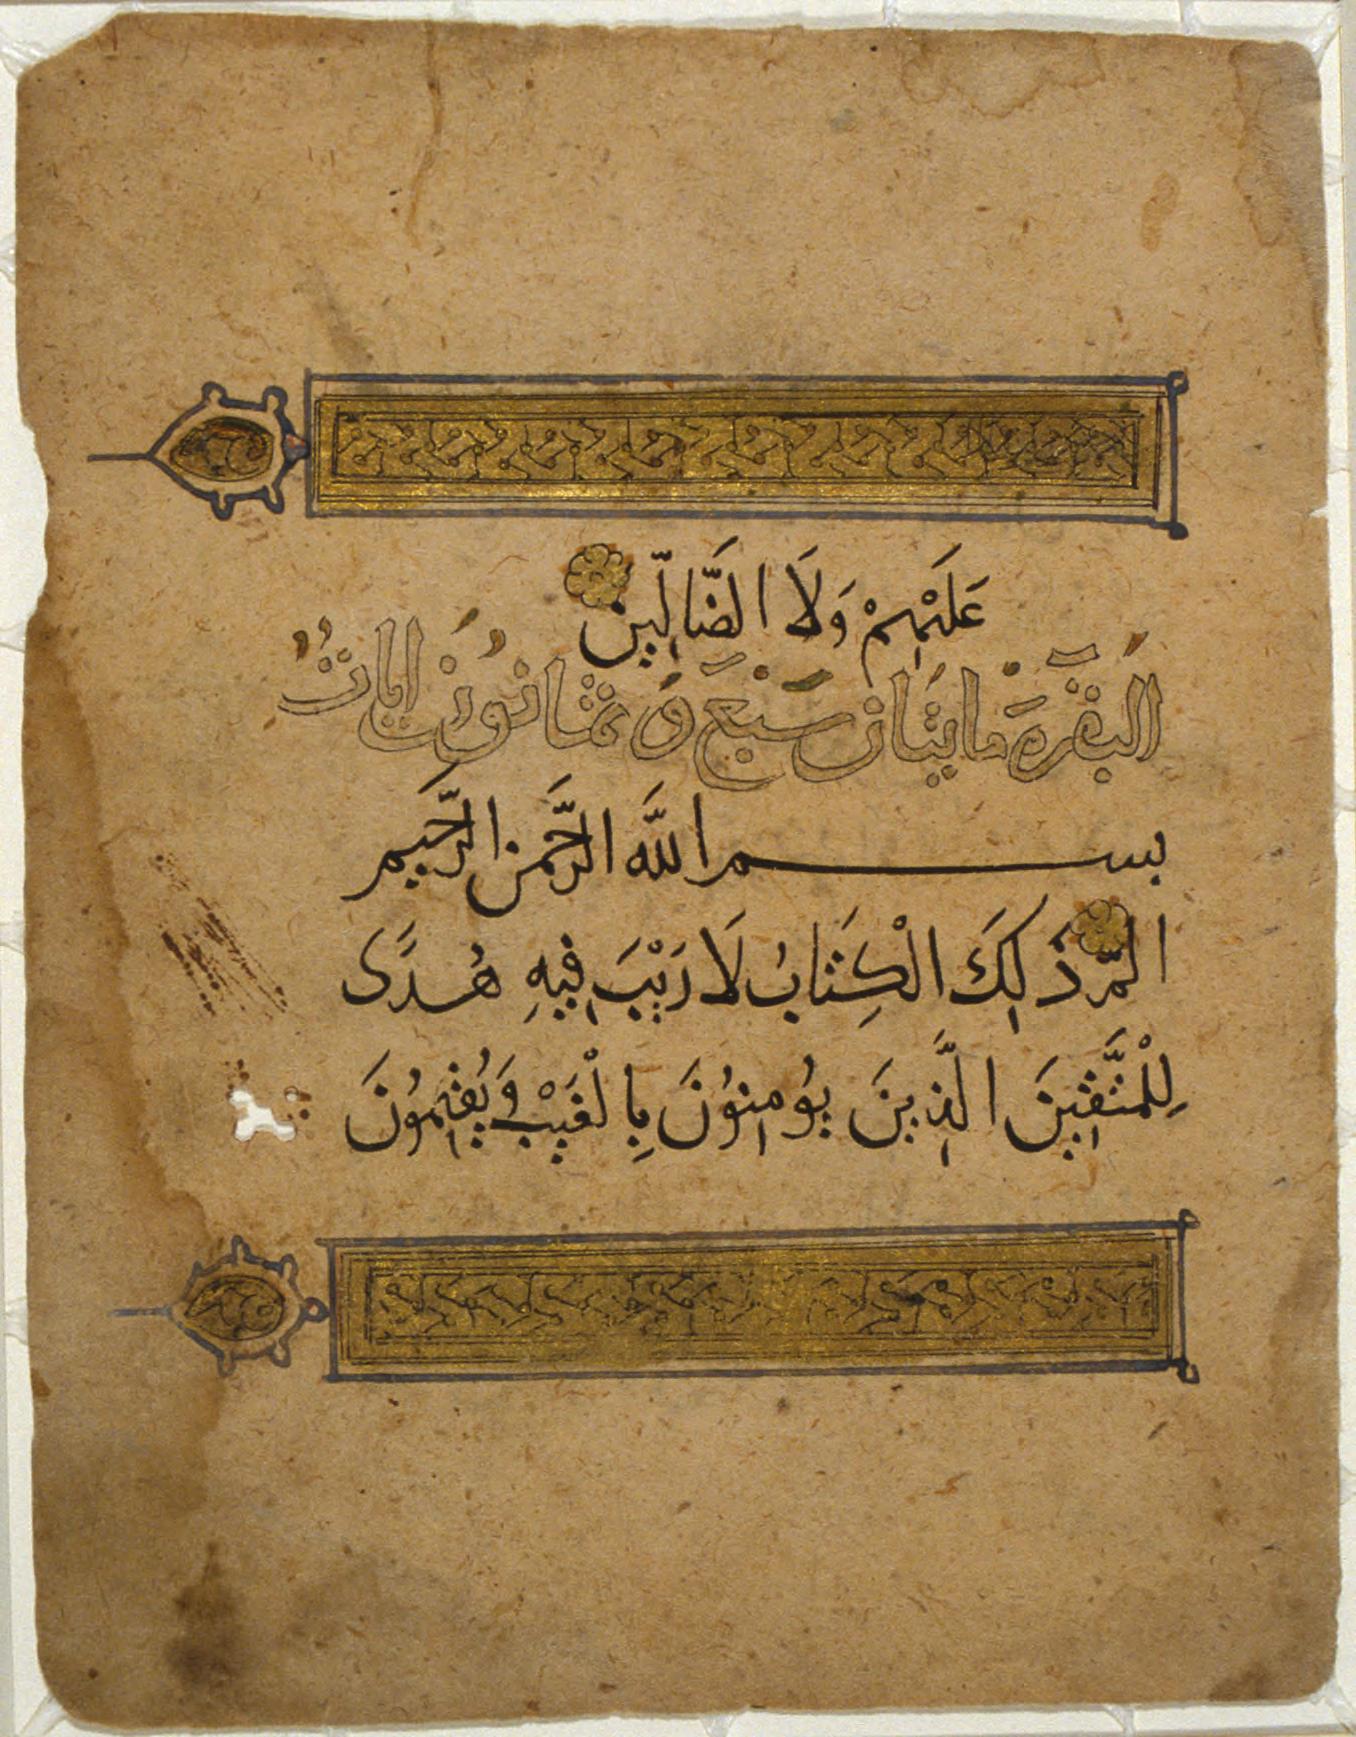 عَلَيْهِمْ وَلَا الضَّالِّينَ
البَقَرَة مايتَان سَبْع وَ ثمَانُون ايات
بسم الله الرَّحمَن الرَّحِيمِ
المّ ذَلِكَ الْكِتَابُ لَا رَيْبَ فِيهِ هُدًى
لِلْمُتَّقِينَ الَّذِينَ يُومِنُونَ بِالْغَيْبِ وَيُقِيمُونَ